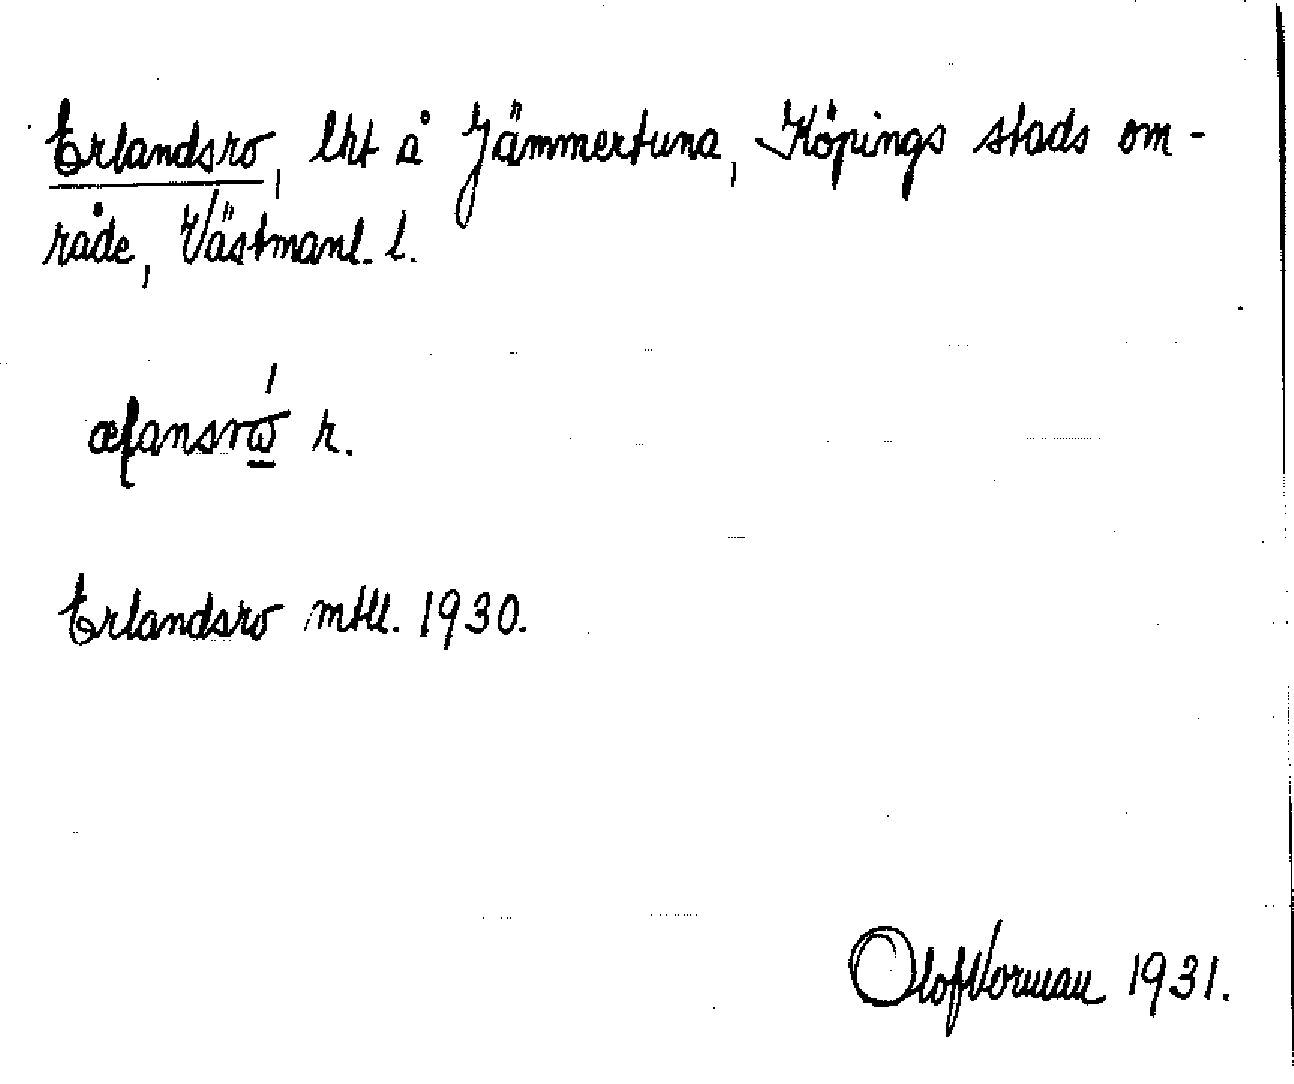 Erlandsro, lht å Jämmertuna, Köpings stads om-
råde, Västmanl. l.
Erlandsro mtll. 1930.
Olof Vorman 1931.